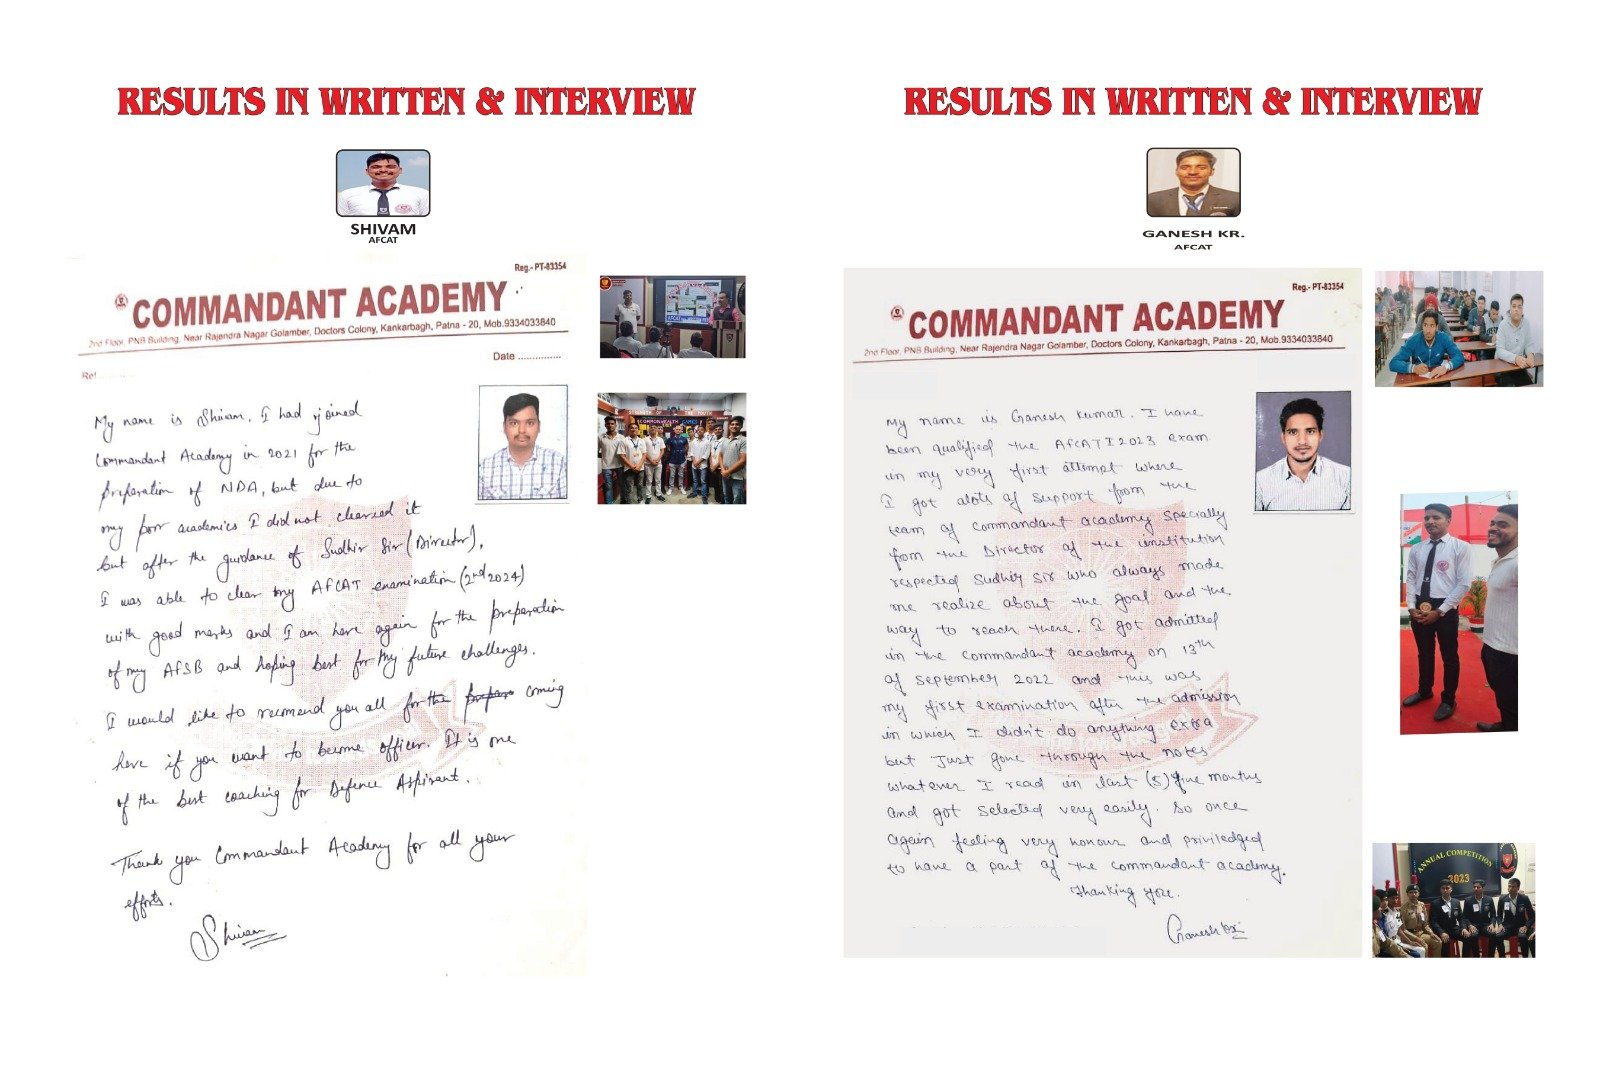 RESULTS IN WRITTEN & INTERVIEW
SHIVAM
AFCAT
Reg.- PT-83354
COMMANDANT ACADEMY
2nd Floor, PNB Building, Near Rajendra Nagar Golamber, Doctors Colony, Kankarbagh, Patna - 20, Mob.9334033840
Date ..............
Ref ............
My name is Shivam. I had joined
Commandant Academy in 2021 for the
preperation of NDA, but due to
my poor academics I did not clearsed it
but after the guidance of Sudhir Sir (Director),
I was able to clear my AFCAT examination (2nd 2024)
with good marks and I am here again for the preperation
of my AFSB and hoping best for my future challenges.
I would like to recomend you all for the coming
here if you want to become officer. It is one
of the best coaching for Defence Aspirant.
Thank you Commandant Academy for all your
efforts.
Shivam
RESULTS IN WRITTEN & INTERVIEW
GANESH KR.
AFCAT
Reg.- PT-83354
COMMANDANT ACADEMY
2nd Floor, PNB Building, Near Rajendra Nagar Golamber, Doctors Colony, Kankarbagh, Patna - 20, Mob.9334033840
My name is Ganesh Kumar. I have
been qualified the AFCAT I 2023 exam
in my very first attempt where
I got alots of support from the
team of commandant academy specially
from the Director of the institution
respected Sudhir Sir who always made
me realize about the goal and the
way to reach there. I got admitted
in the commandant academy on 13th
of September 2022 and this was
my first examination after the admission
in which I didn't do anything extra
but Just gone through the notes
whatever I read in last (5) five months
and got selected very easily. So once
again feeling very honour and priviledged
to have a part of the commandant academy.
Thanking you.
Ganesh Kr
ANNUAL COMPETITION
2023